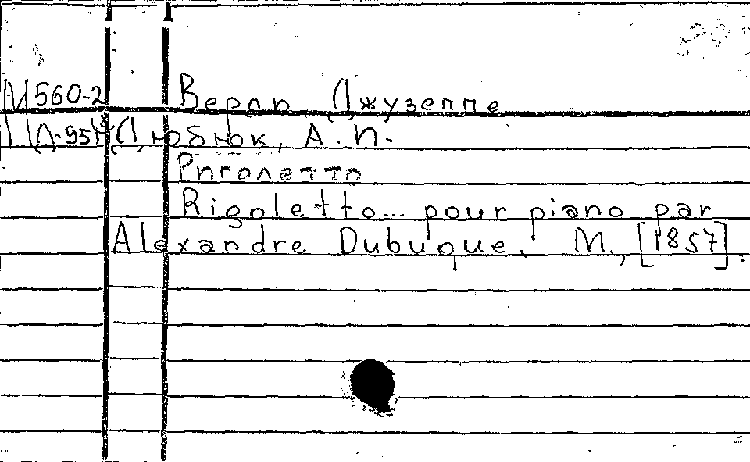 М560-2 Верди, Джузеппе
Дюбюк, А.И.
Риголетто
Rigoletto... pour piano par
Alexandre Dubuque. М., [1857].